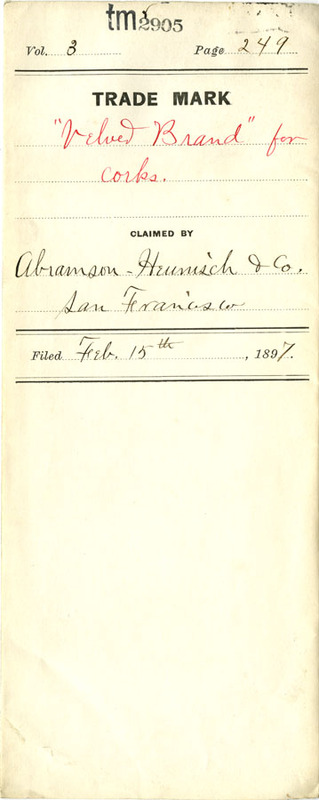 tm2905
Vol. 3 Page 249
TRADE MARK
"Velved Brand" for
corks.
CLAIMED BY
Abramson-Heunisch & Co.
San Francisco
Filed Feb. 15th, 1897.